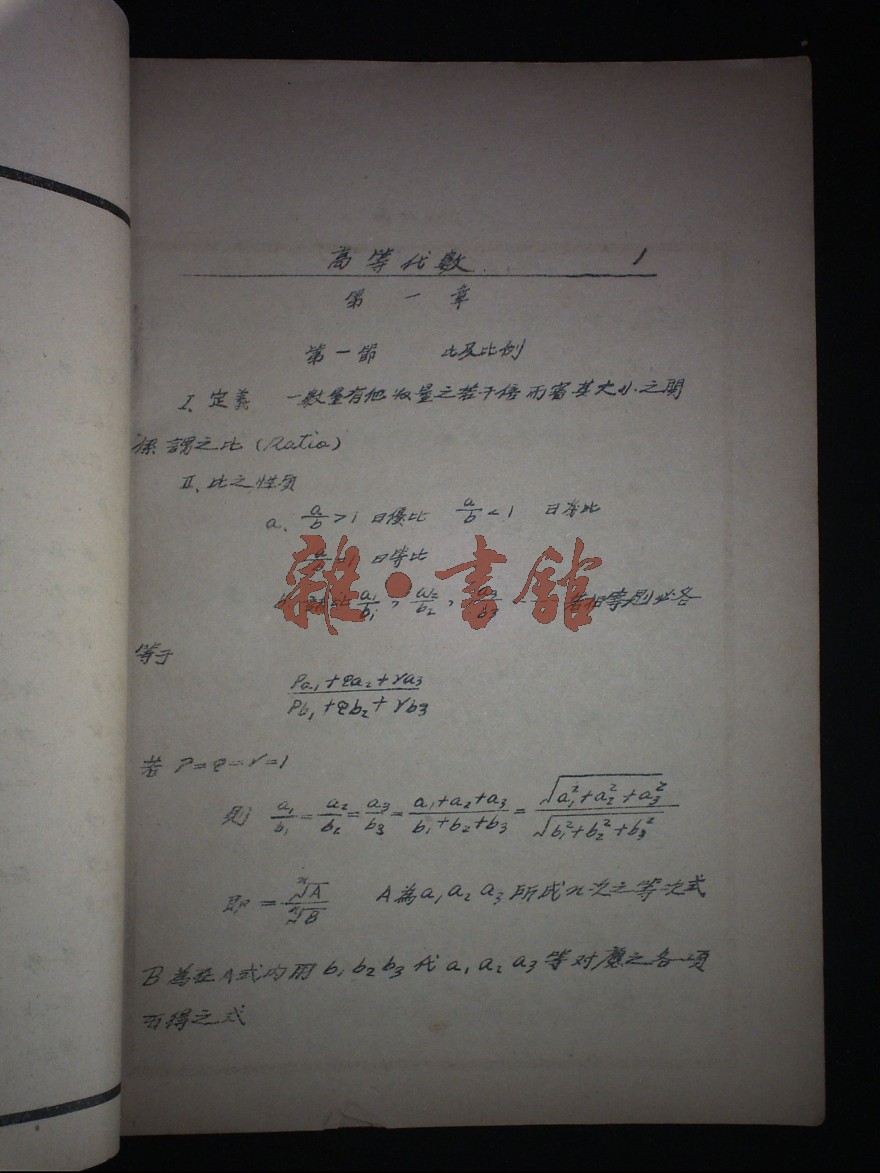 高等代數 1
第一章
第一節 比及比例
I、定義 一數量有他數量之若干倍而審其大小之關
係謂之比 (Ratio)
II、比之性质
a、 a/b > 1 曰優比 a/b < 1 曰劣比
曰等比
a₁/b₁, a₂/b₂, a₃/b₃ 若相等則必各
雜·書館
等于
(Pa₁+qa₂+ra₃)/(Pb₁+qb₂+rb₃)
若 P=q=r=1
則 a₁/b₁ = a₂/b₂ = a₃/b₃ = (a₁+a₂+a₃)/(b₁+b₂+b₃) = √(a₁²+a₂²+a₃²)/√(b₁²+b₂²+b₃²)
即 = ⁿ√A/ⁿ√B A為a₁a₂a₃所成n次之等次式
B為在A式内用b₁b₂b₃代a₁a₂a₃等对應之各項
而得之式